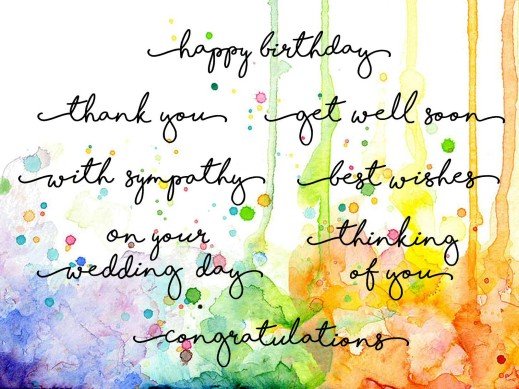 happy birthday
thank you
get well soon
with sympathy
best wishes
on your
wedding day
thinking
of you
congratulations